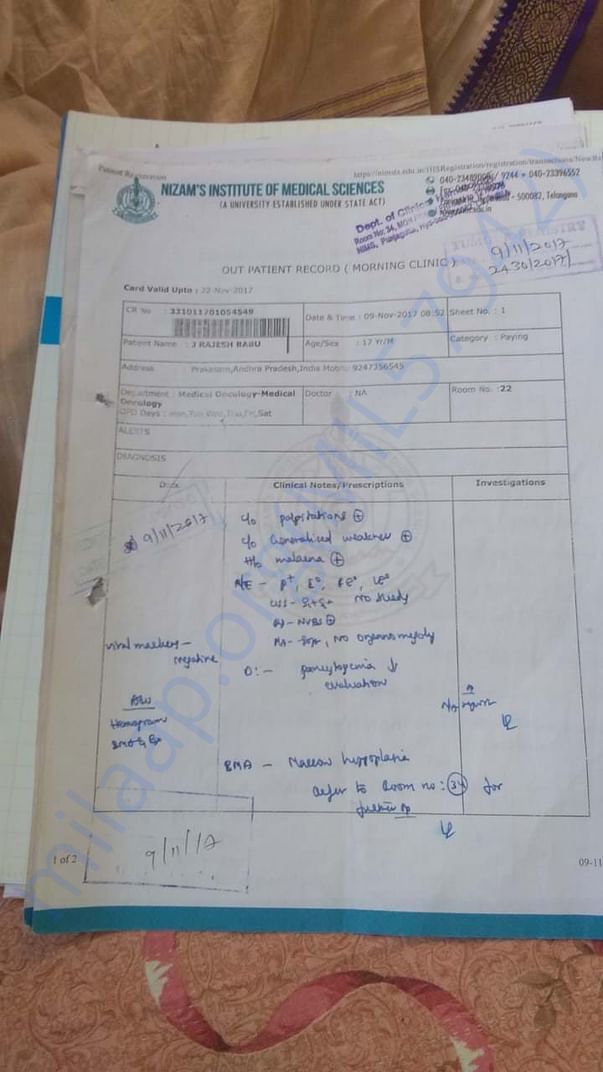 Patient Registration
https://nimsts.edu.in/HISRegistration/registration/transactions/New
NIZAM'S INSTITUTE OF MEDICAL SCIENCES
(A UNIVERSITY ESTABLISHED UNDER STATE ACT)
9244 + 040-23396552
500082, Telangana
Dept. of Clinical
Room No: 34,
NIMS, Punjagutta,
9/11/2017
2430/2017
OUT PATIENT RECORD ( MORNING CLINIC )
Card Valid Upto : 22-Nov-2017
CR No : 331011701054549
Date & Time : 09-Nov-2017 08:52
Sheet No. : 1
Patient Name : J RAJESH BABU
Age/Sex : 17 Yr/M
Category : Paying
Address Prakasam,Andhra Pradesh,India Mobile: 9247356545
Department : Medical Oncology-Medical Oncology
Doctor : NA
Room No. :22
OPD Days : Mon,Tue,Wed,Thu,Fri,Sat
ALERTS
DIAGNOSIS
Date
Clinical Notes/Prescriptions
Investigations
9/11/2017
c/o palpitations ⊕
c/o Generalised weakness ⊕
H/o malaena ⊕
O/E - P+, I°,
CVS - S1+S2+
- NVBS ⊕
PA - Soft, NO organomegaly
viral markers -
negative
D: - pancytopenia ↓
evaluation
Adv
Hemogram
BMA & Bx
BMA - Marrow hypoplasia
Refer to Room no: 34 for
further
9/11/17
1 of 2
09-11
milaap.org